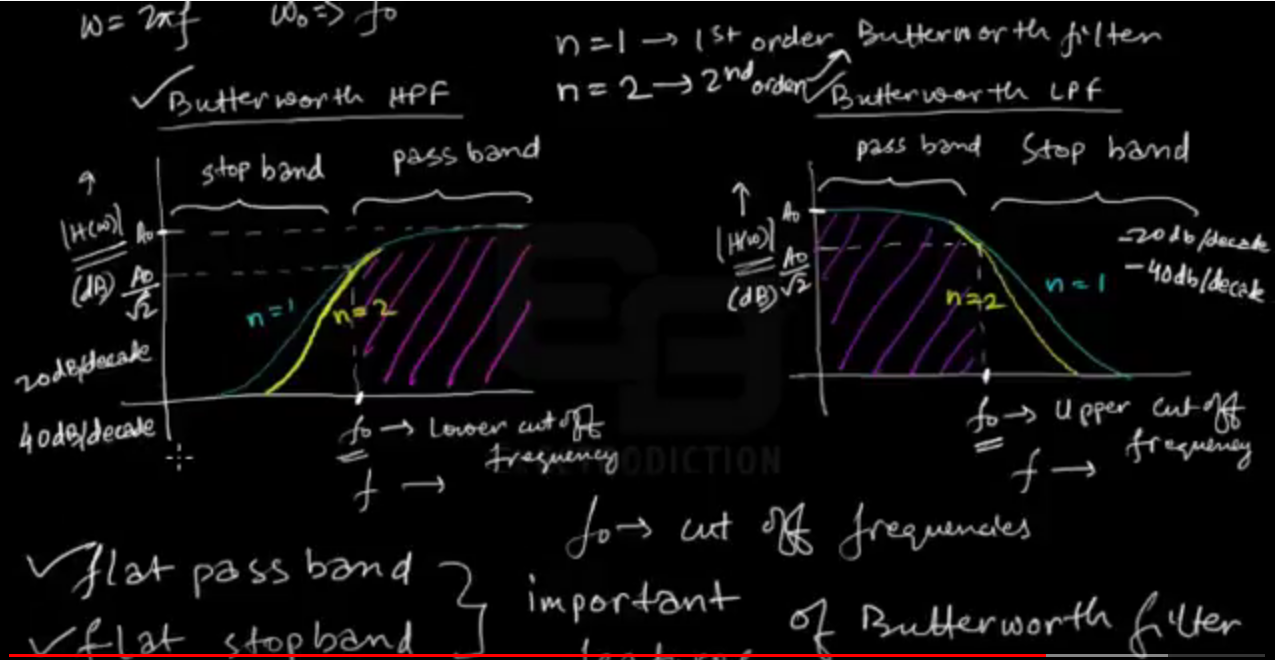 w = 2πf    w₀ => f₀
n = 1 → 1st order Butterworth filter
n = 2 → 2nd order
✓Butterworth HPF
✓Butterworth LPF
stop band
pass band
|H(w)|
(dB)
A₀
A₀/√2
n=1
n=2
20dB/decade
40dB/decade
f₀ → Lower cut off
frequency
f →
pass band
Stop band
|H(w)|
(dB)
A₀
A₀/√2
n=2
n=1
-20db/decade
-40db/decade
f₀ → Upper cut off
frequency
f →
RODICTION
f₀ → cut off frequencies
✓flat pass band
✓flat stopband
important
of Butterworth filter